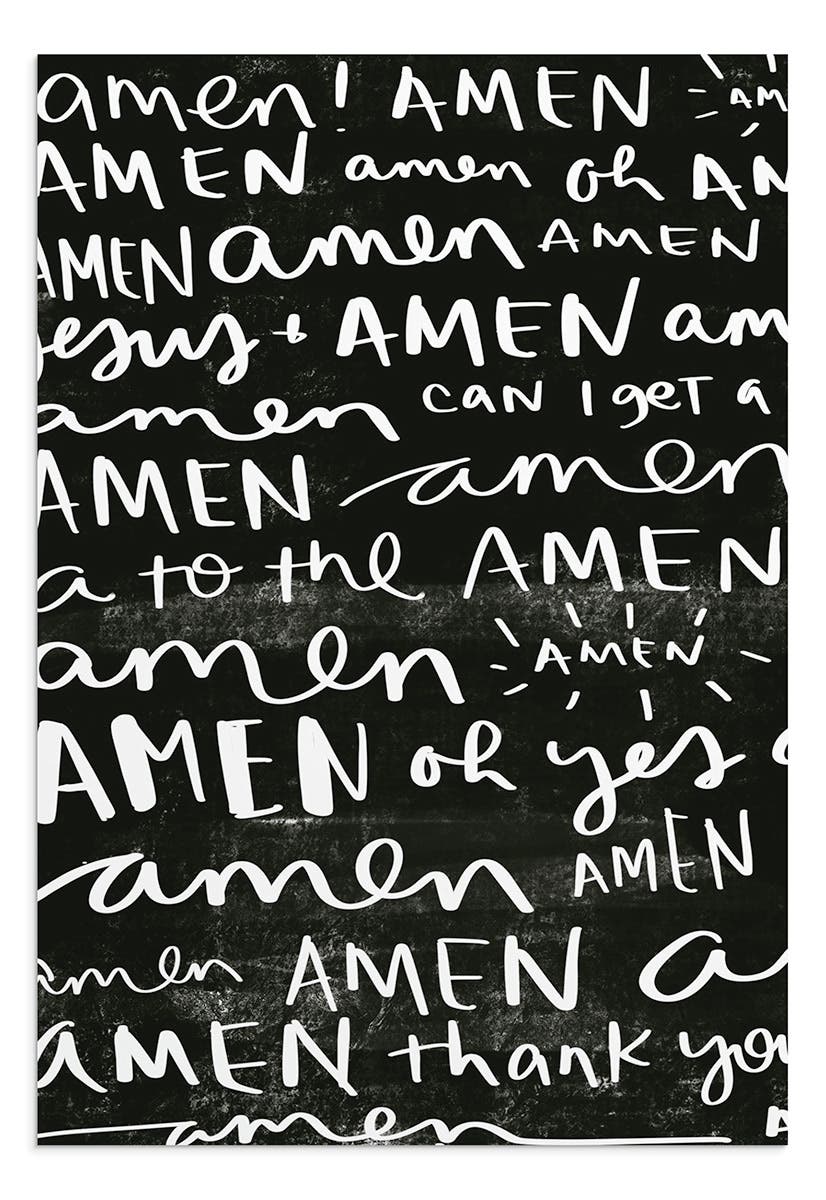 amen! AMEN AM
AMEN amen oh AN
AMEN amen AMEN
Jesus + AMEN am
amen can I get a
AMEN amen
a to the AMEN
amen AMEN
AMEN oh yes
amen AMEN
amen AMEN a
AMEN thank you
amen A